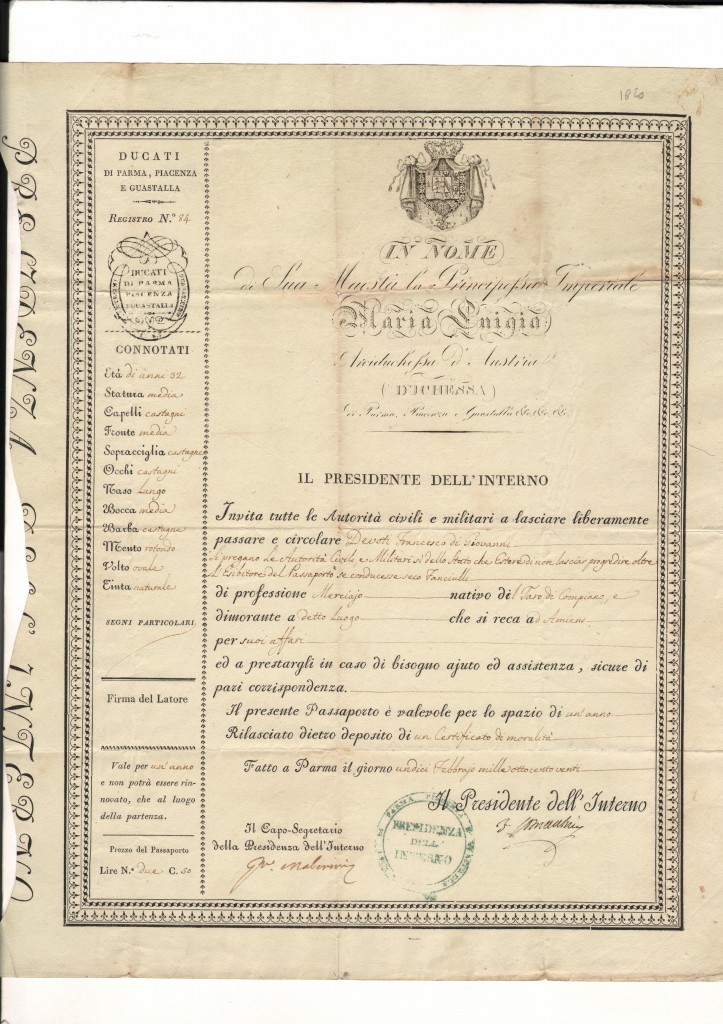 1820
DUCATI
DI PARMA, PIACENZA
E GUASTALLA
REGISTRO N.º 84
DUCATI
DI PARMA
PIACENZA
E GUASTALLA
CONNOTATI
Età di anni 32
Statura media
Capelli castagni
Fronte media
Sopracciglia castagne
Occhi castagni
Naso Lungo
Bocca media
Barba castagna
Mento rotondo
Volto ovale
Tinta naturale
SEGNI PARTICOLARI
Firma del Latore
Vale per un' anno
e non potrà essere rin-
novato, che al luogo
della partenza.
Prezzo del Passaporto
Lire N.º due C. 50
IN NOME
di Sua Maestà la Principessa Imperiale
Maria Luigia
Arciduchessa d'Austria
(DUCHESSA)
di Parma, Piacenza e Guastalla &c. &c. &c.
IL PRESIDENTE DELL'INTERNO
Invita tutte le Autorità civili e militari a lasciare liberamente
passare e circolare Devoti Francesco di Giovanni
Si pregano le Autorità Civili e Militari sì dello Stato che Estere di non lasciar progredire oltre
l'Esibitore del Passaporto se conducesse seco Fanciulli
di professione Merciajo nativo di l Taro di Compiano, e
dimorante a detto Luogo che si reca ad Amiens
per suoi affari
ed a prestargli in caso di bisogno ajuto ed assistenza, sicure di
pari corrispondenza.
Il presente Passaporto è valevole per lo spazio di un' anno
Rilasciato dietro deposito di un Certificato di moralità
Fatto a Parma il giorno undici Febbrajo mille ottocento venti
Il Presidente dell' Interno
Il Capo-Segretario
della Presidenza dell'Interno
PRESIDENZA
DELL'
INTERNO